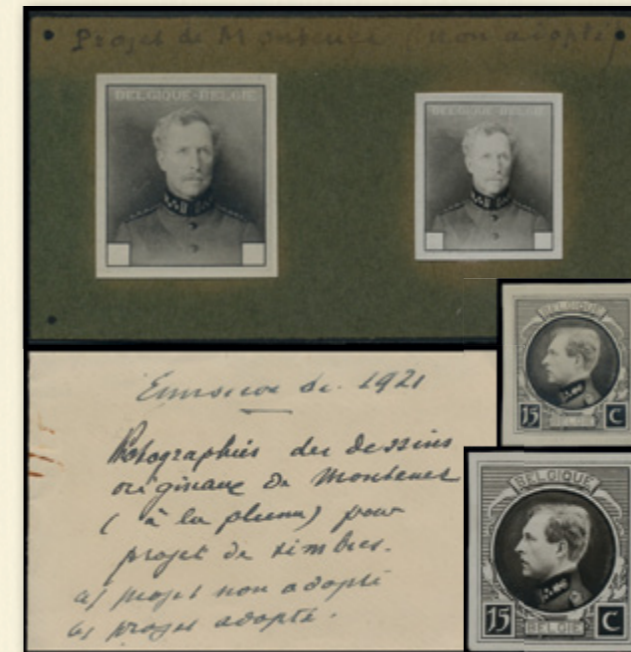 Projet de Montenez (non adopté)
BELGIQUE-BELGIE
BELGIQUE-BELGIE
BELGIQUE
15 C
BELGIE
Emission de 1921
Photographies des dessins
originaux de Montenez
(à la plume) pour
projet de timbres.
a) projet non adopté
b) projet adopté.
BELGIQUE
15 C
BELGIE